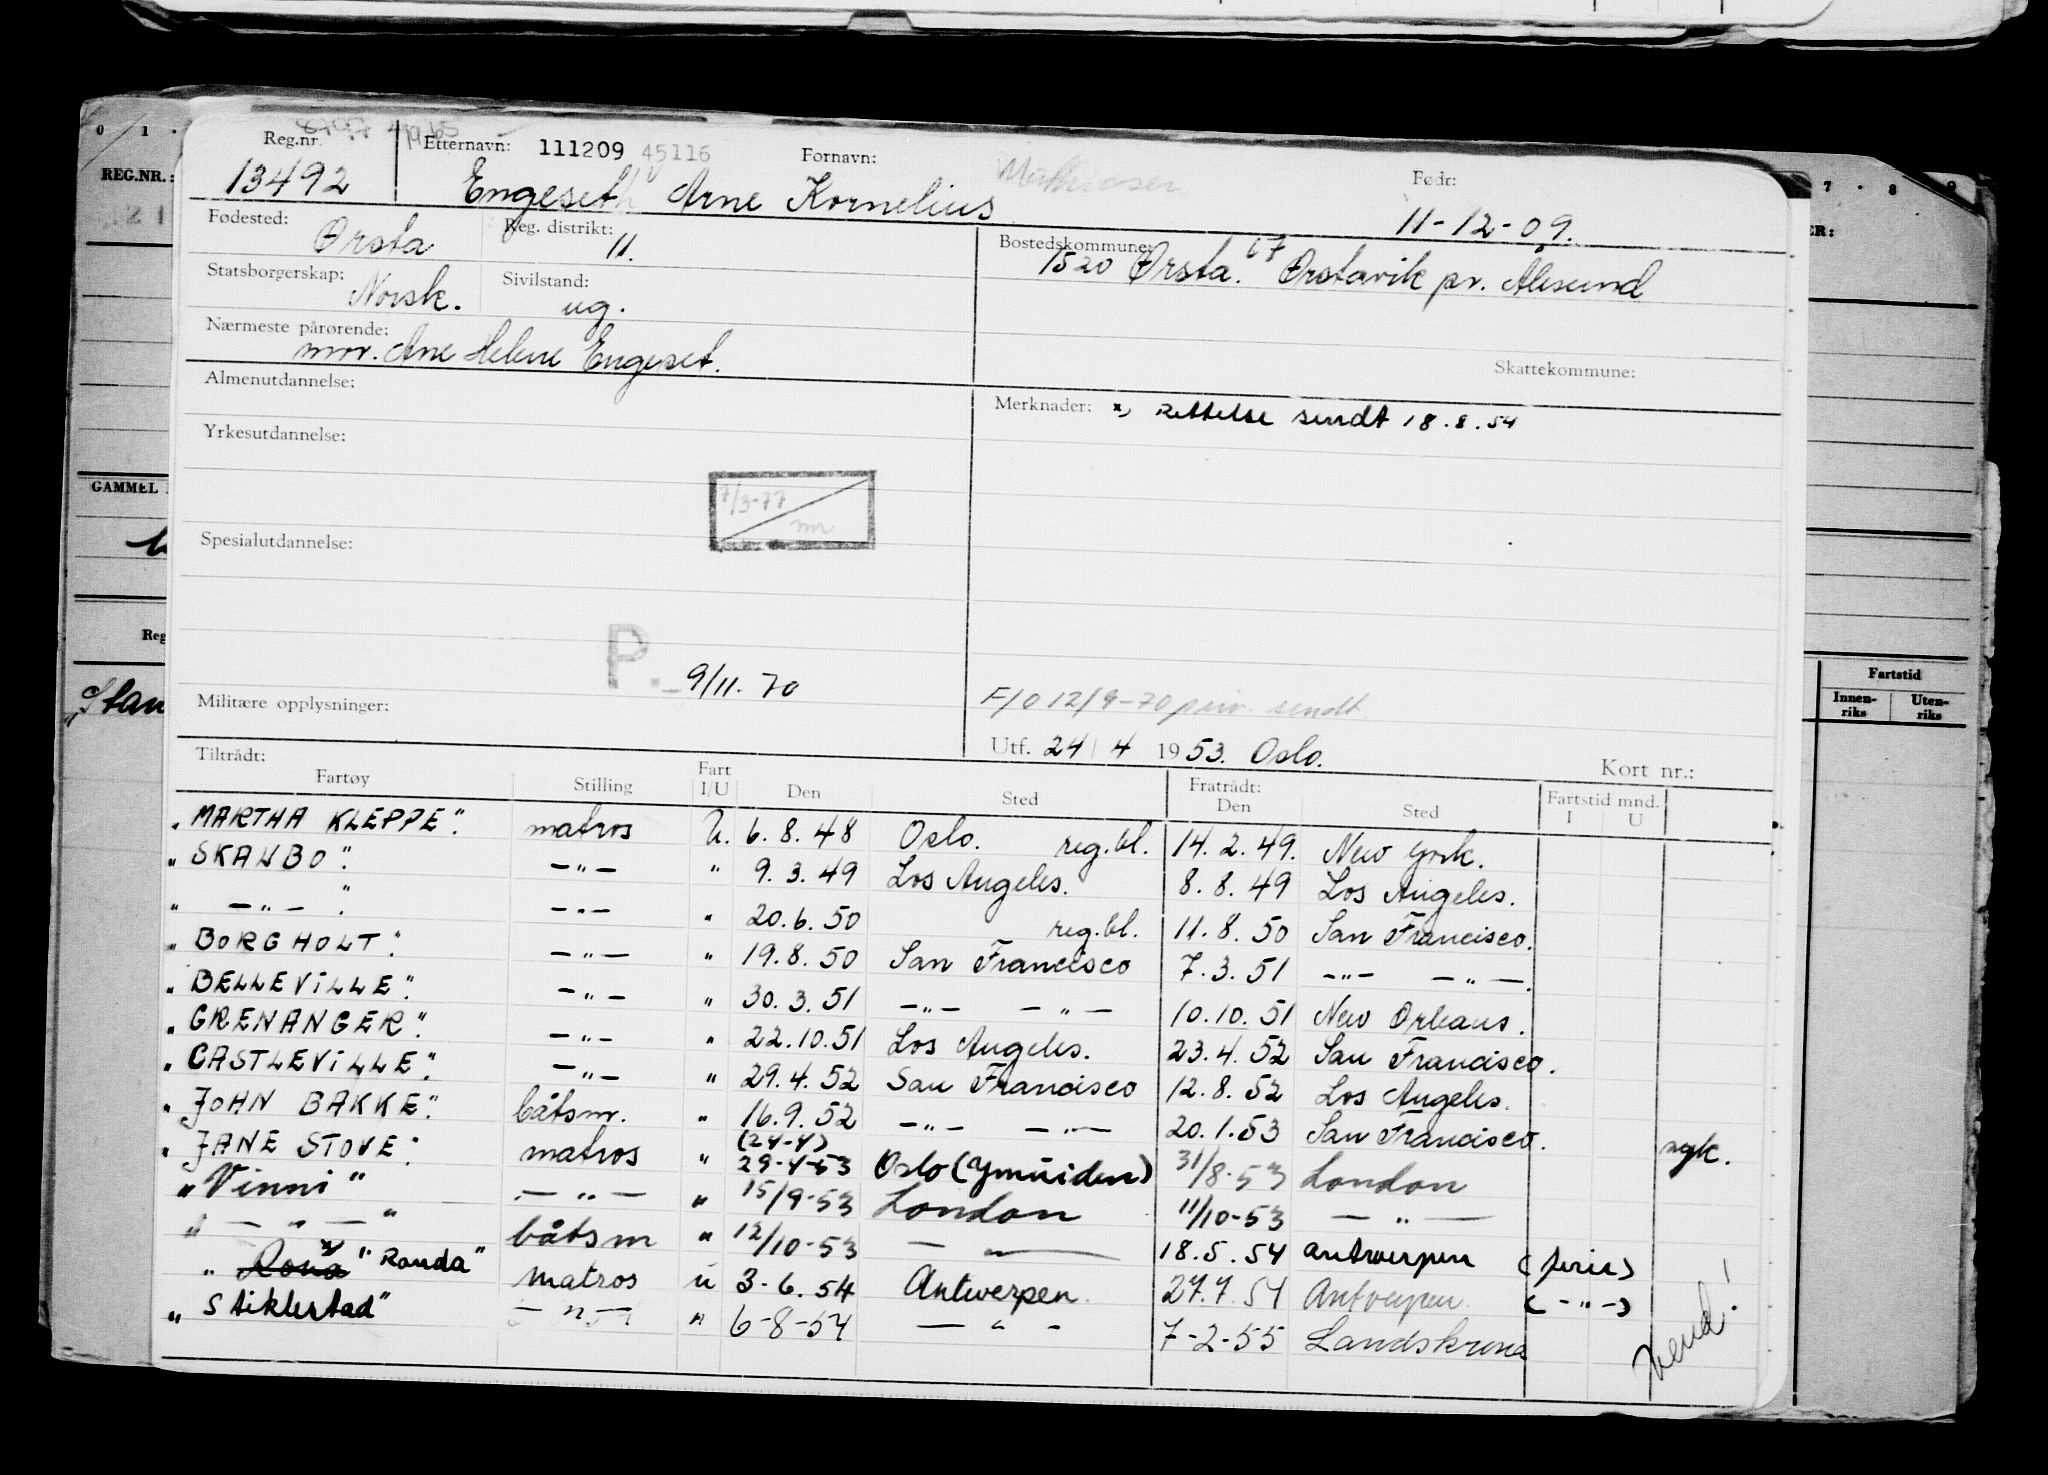 Reg.nr. Etternavn: 111209 45116 Fornavn: Mathiasen Født:
13492 Engeseth Arne Kornelius 11-12-09.
Fødested: Ørsta Reg. distrikt: 11. Bostedskommune: 1520 Ørsta. 67 Ørstavik pr. Ålesund
Statsborgerskap: Norsk. Sivilstand: ug.
Nærmeste pårørende: mor. Ane Helene Engeset.
Skattekommune:
Almenutdannelse:
Merknader: x) Rettelse sendt 18.8.54
Yrkesutdannelse:
7/3-77
Spesialutdannelse:
P. 9/11.70
Militære opplysninger:
F/O 12/9-70 sendt
Utf. 24/4 1953. Oslo.
Kort nr.:
Tiltrådt: Fratrådt:
Fartøy Stilling Fart I/U Den Sted Den Sted Fartstid mnd. I U
"MARTHA KLEPPE". matros U. 6.8.48 Oslo. reg.bl. 14.2.49. New York.
"SKANBO". —"— " 9.3.49 Los Angeles. 8.8.49 Los Angeles.
" —"— ". —"— " 20.6.50 reg.bl. 11.8.50 San Francisco.
"BORGHOLT". —"— " 19.8.50 San Francisco 7.3.51 —"— —"—.
"BELLEVILLE". —"— " 30.3.51 —"— —"— 10.10.51 New Orleans.
"GRENANGER". —"— " 22.10.51 Los Angeles. 23.4.52 San Francisco.
"CASTLEVILLE". —"— " 29.4.52 San Francisco 12.8.52 Los Angeles.
"JOHN BAKKE". båtsm. " 16.9.52 —"— —"— 20.1.53 San Francisco. syk.
"JANE STOVE". matros " (24-4) 29-4-53 Oslo (Ymuiden) 31/8-53 London
"Vinni" —"— " 15/9-53 London 11/10-53 —"—
" —"— " båtsm " 12/10-53 —"— 18.5.54 Antwerpen (ferie)
" Rona x) "Randa" matros u 3-6.54 Antwerpen. 27.7.54 Antwerpen. (-"-)
"Stiklestad" —"— " 6-8-54 —"— 7-2-55 Landskrona
Vend!
0 1
REG.NR.:
21
GAMMEL
Reg
"Stav
7 · 8 · 9
ER:
Fartstid
Innen-riks Uten-riks